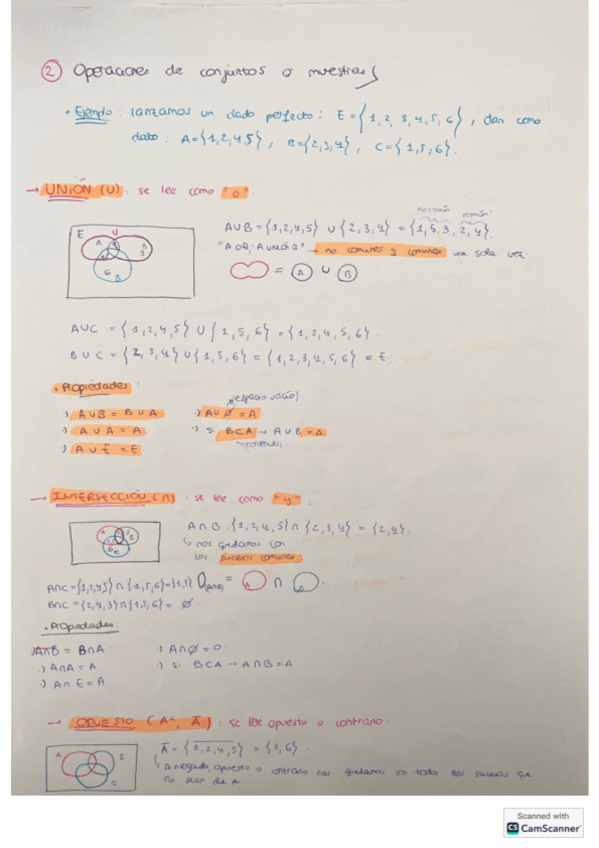 ② Operaciones de conjuntos o muestras
• Ejemplo: lanzamos un dado perfecto: E={1, 2, 3, 4, 5, 6}, dan como
dato: A={1,2,4,5}, B={2,3,4}, C={1,5,6}.
→ UNIÓN (U): se lee como "o".
no común común
E U A B 3 6
A∪B={1,2,4,5} ∪ {2,3,4} = {1,5,3,2,4}.
"A o B; A unión B" → no comunes y comunes una sola vez.
= A ∪ B
A∪C = {1,2,4,5} ∪ {1,5,6} = {1,2,4,5,6}.
B∪C = {2,3,4} ∪ {1,5,6} = {1,2,3,4,5,6} = E
• Propiedades:
(espacio vacío)
·) A∪B = B∪A ·) A∪∅ = A
·) A∪A = A ·) si B⊂A → A∪B = A
·) A∪E = E
→ INTERSECCIÓN (∩): se lee como "y":
A∩B {1,2,4,5} ∩ {2,3,4} = {2,4}.
↳ nos quedamos con
los sucesos comunes
A∩C={1,2,4,5} ∩ {1,5,6}={1,5} = A ∩
B∩C={2,4,3}∩{1,5,6} = ∅.
• Propiedades:
·) A∩B = B∩A ·) A∩∅=∅
·) A∩A = A ·) si BCA → A∩B=A.
·) A∩E = A
→ OPUESTO (Aᶜ, A̅): se lee opuesto o contrario.
A
A̅ = {1,2,4,5} = {3,6}.
A negado, opuesto o contrario nos quedamos con todos los sucesos que
no sean de A
Scanned with
CS CamScanner